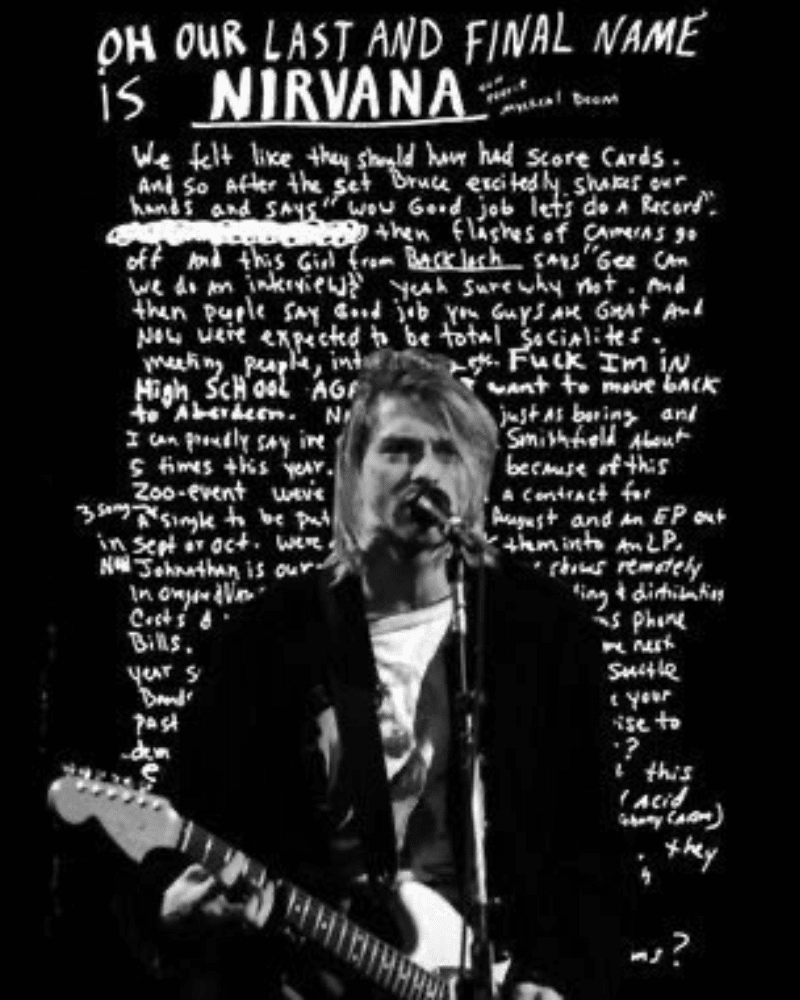 OH OUR LAST AND FINAL NAME
iS NIRVANA
musical Doom
We felt like they should have had Score CArds.
And So After the set Bruce excitedly shakes our
hands and SAYS "WOW Good job lets do A Record".
then flashes of CAmerAs go
off And this Girl from BACKlash SAYS "Gee CAn
We do An interview?" yeah Sure why not. And
then people SAY Good job you GUYS ARE GREAT And
Now Were expected to be total SociAlites.
meeting people, int etc. FUCK Im iN
High SCHOOL AGA I want to move bACK
to Aberdeen. just AS boring and
I can proudly SAY ive Smithfield About
5 times this year. becAuse of this
Zoo-event weve A contract for
3 Song A single to be put August and An EP out
in Sept or oct. Were them into An LP.
NOW Johnathan is our shows remotely
in ting & distribution
Costs phone
Bills. me next
yeAr S Suttle
BAnds your
past ise to
dem ?
this
(Acid
they
ms?